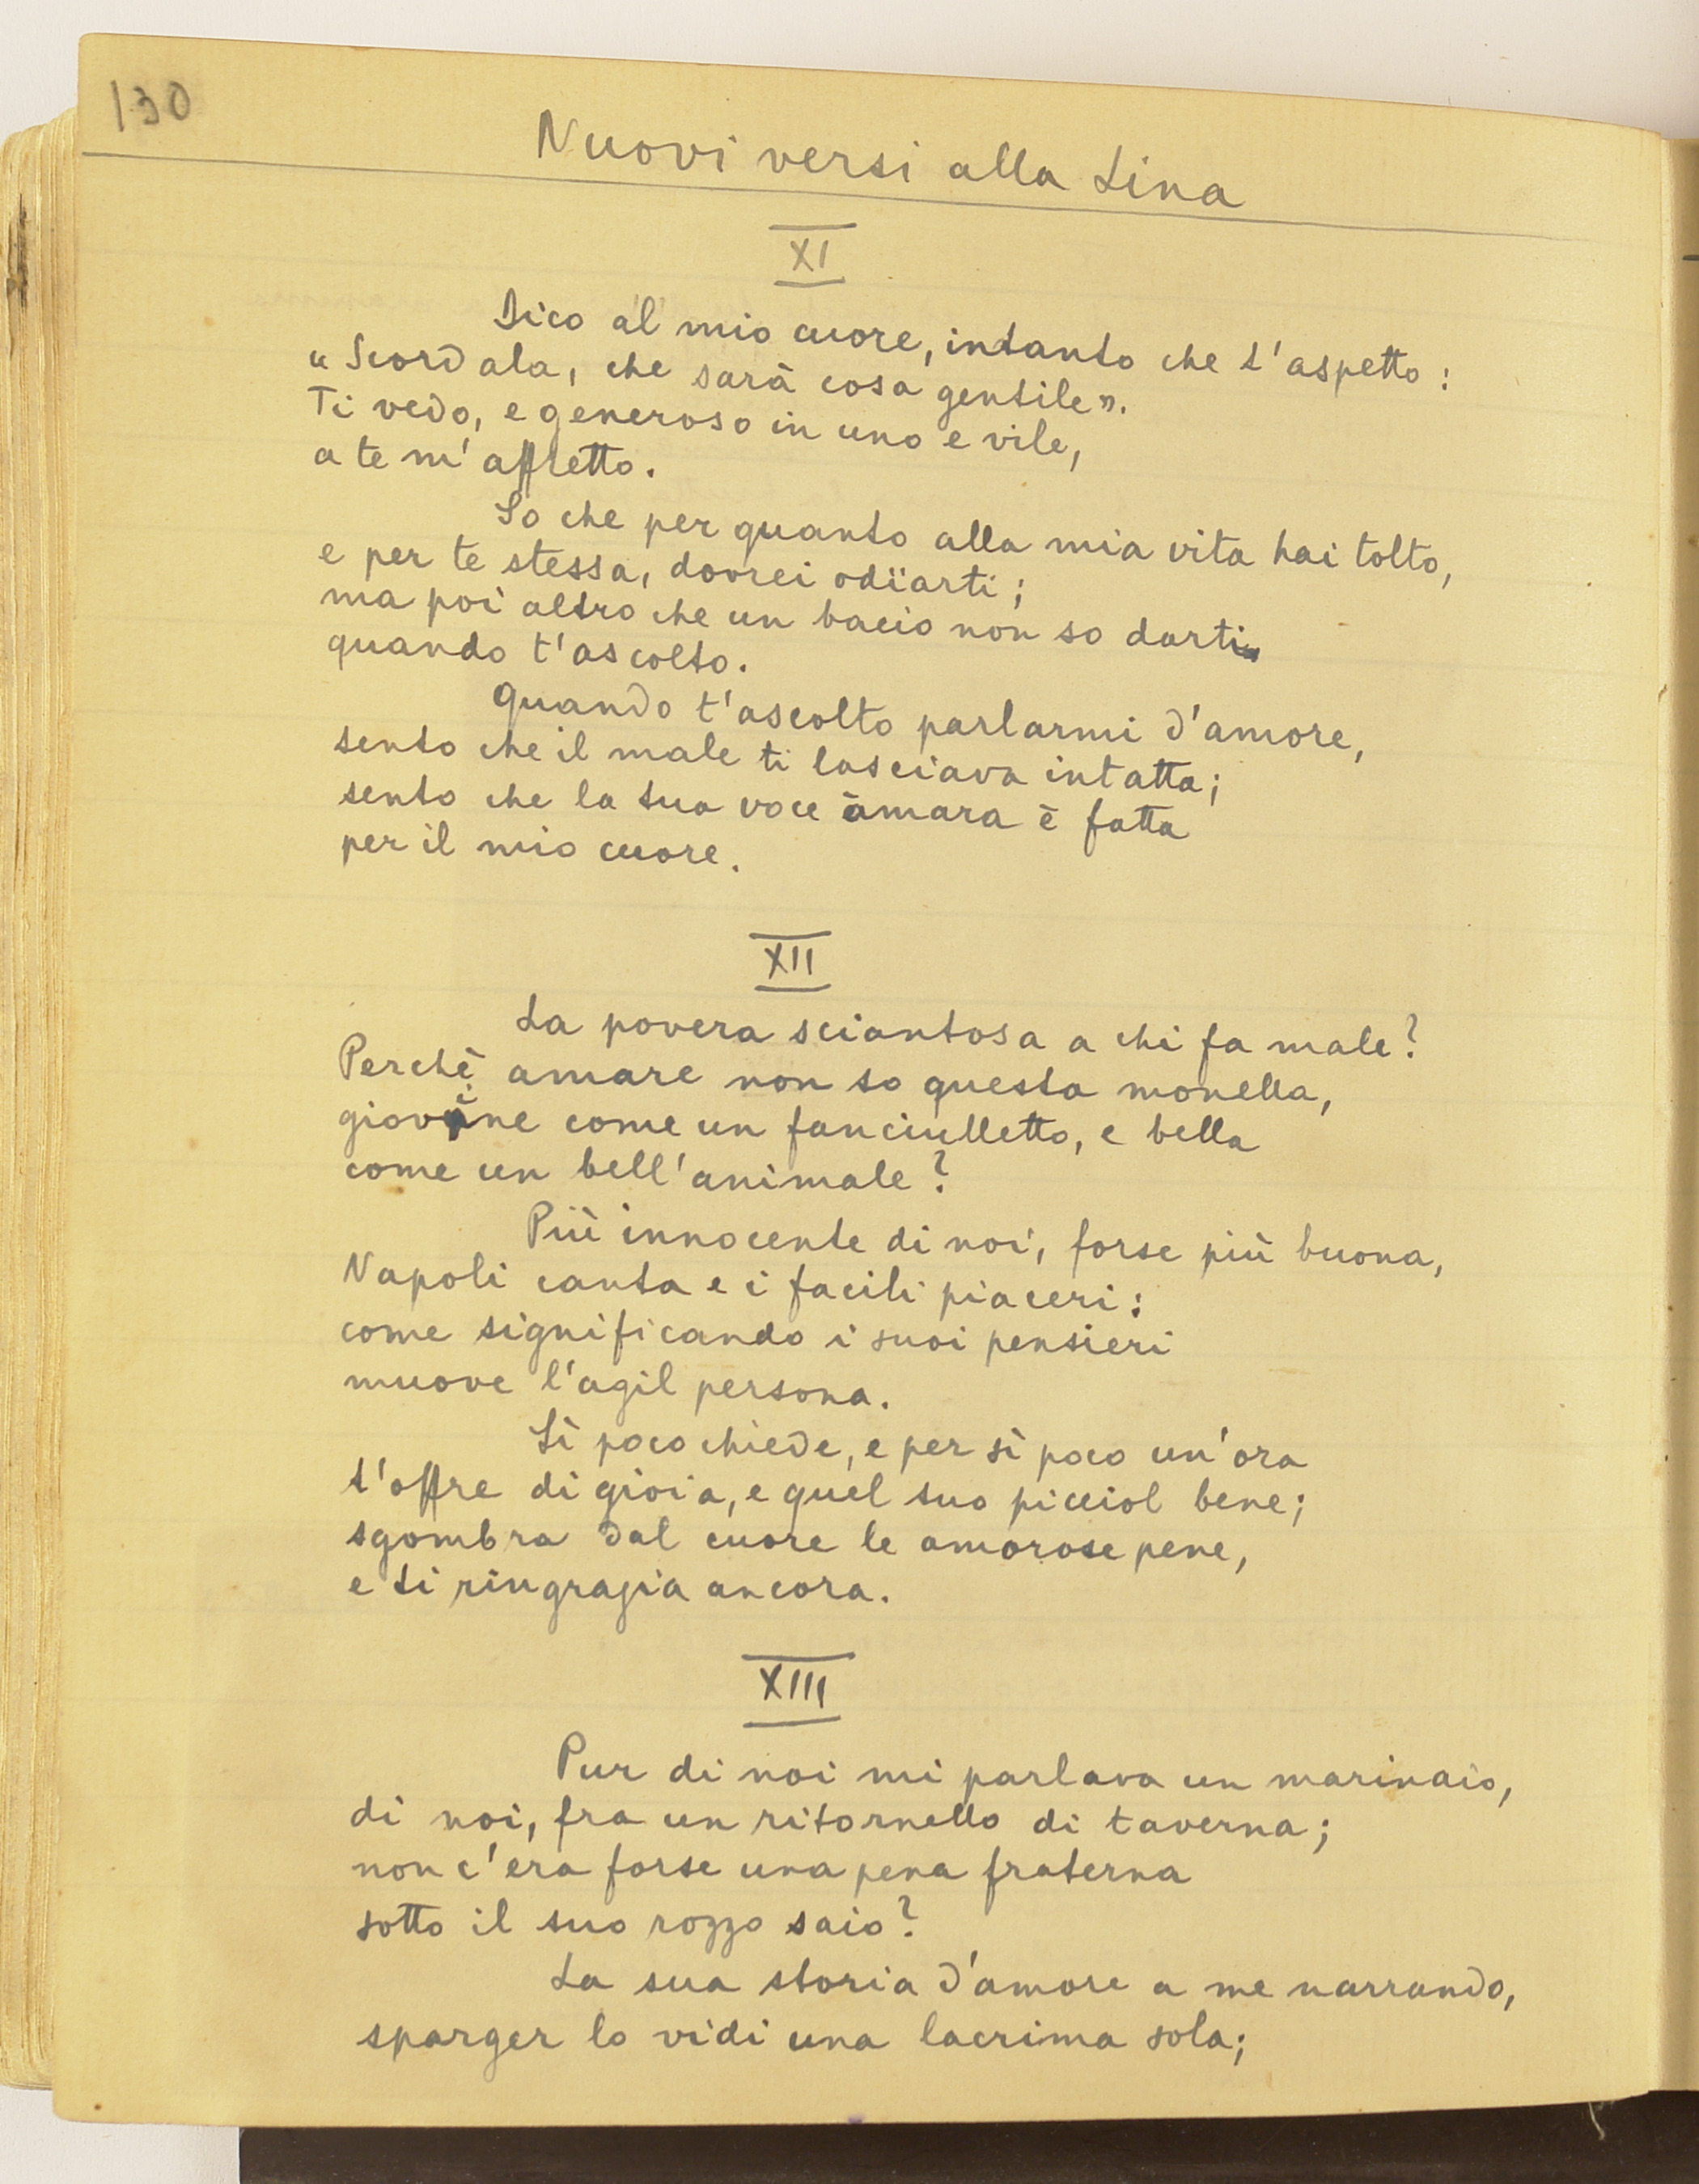 130
Nuovi versi alla Lina
XI
Dico al mio cuore, intanto che t'aspetto:
"Scordala, che sarà cosa gentile".
Ti vedo, e generoso in uno e vile,
a te m'affretto.
So che per quanto alla mia vita hai tolto,
e per te stessa, dovrei odïarti;
ma poi altro che un bacio non so darti
quando t'ascolto.
Quando t'ascolto parlarmi d'amore,
sento che il male ti lasciava intatta;
sento che la tua voce amara è fatta
per il mio cuore.
XII
La povera sciantosa a chi fa male?
Perchè amare non so questa monella,
giovine come un fanciulletto, e bella
come un bell'animale?
Più innocente di noi, forse più buona,
Napoli canta e i facili piaceri:
come significando i suoi pensieri
muove l'agil persona.
Sì poco chiede, e per sì poco un'ora
t'offre di gioia, e quel suo picciol bene;
sgombra dal cuore le amorose pene,
e ti ringrazia ancora.
XIII
Pur di noi mi parlava un marinaio,
di noi, fra un ritornello di taverna;
non c'era forse una pena fraterna
sotto il suo rozzo saio?
La sua storia d'amore a me narrando,
sparger lo vidi una lacrima sola;